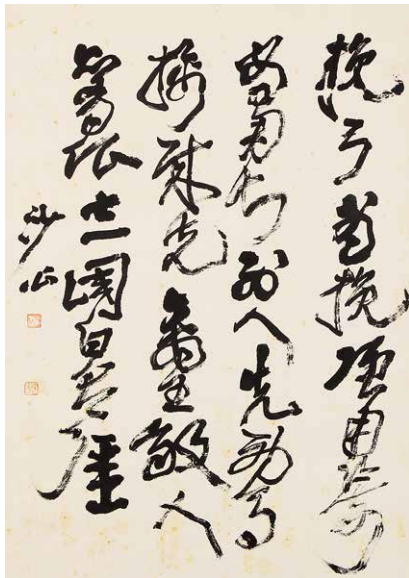 挽弓當挽強用箭
當用長射人先射馬
擒賊先擒王殺人
亦有限立國自有疆